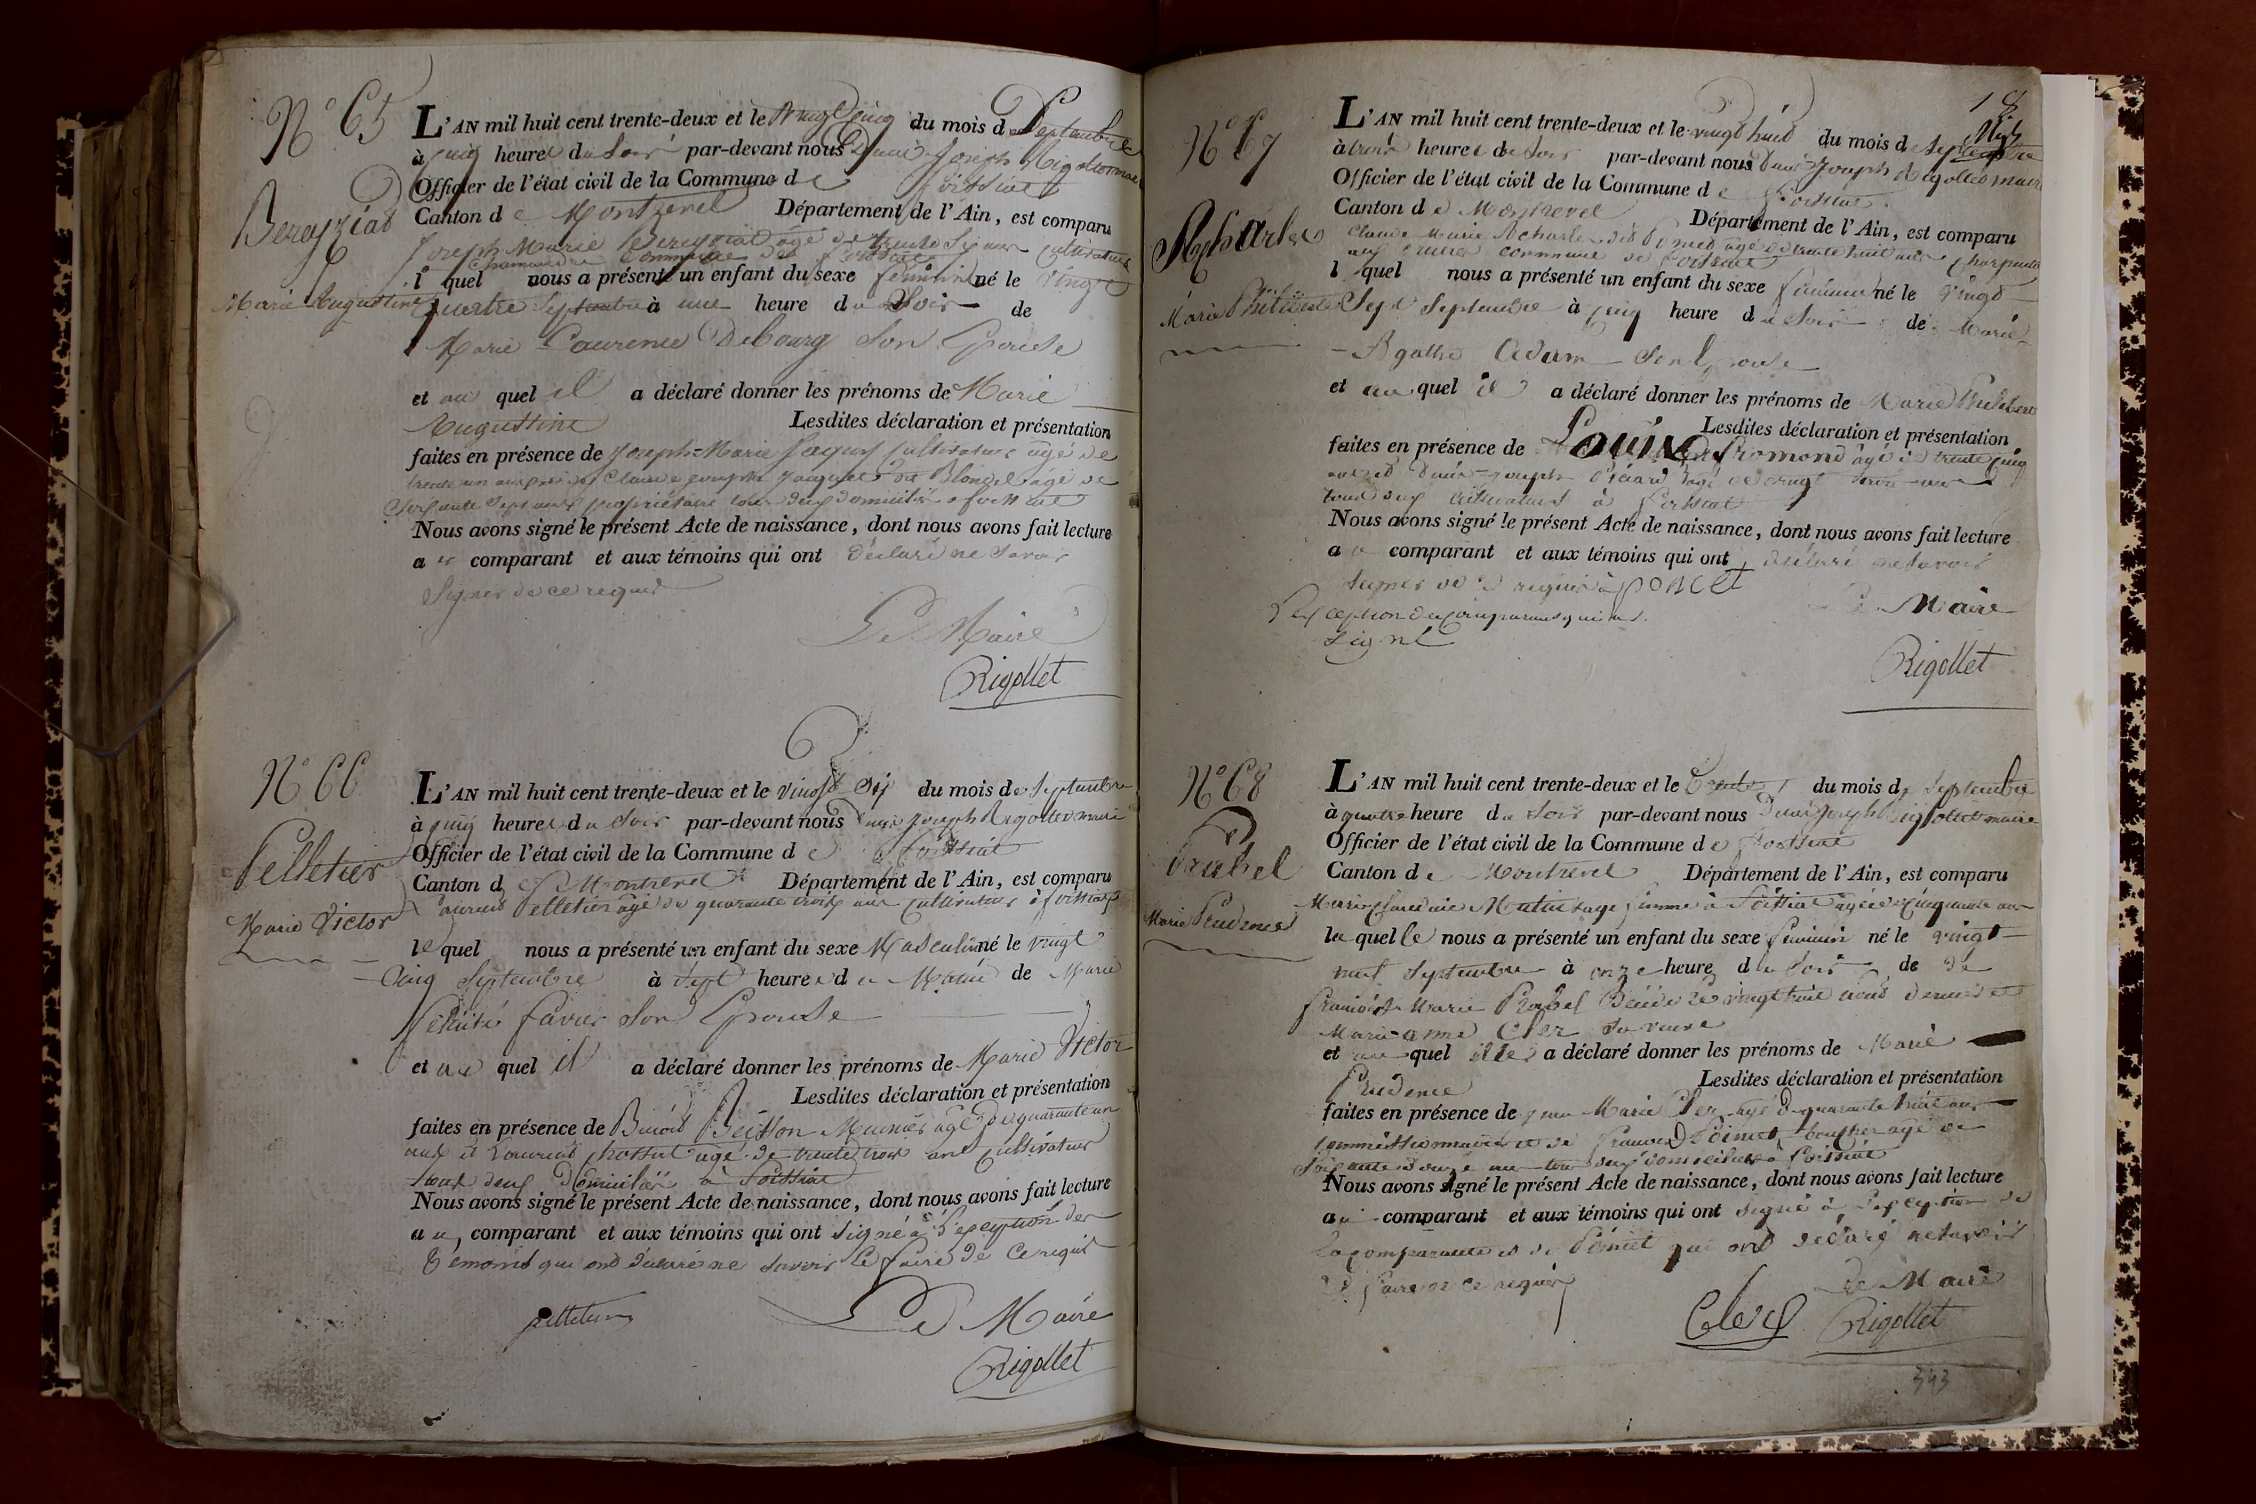 N° 65
L'AN mil huit cent trente-deux et le vingt cinq du mois de Septembre
à cinq heures du Soir par-devant nous Denis Joseph Rigollet maire
Officier de l'état civil de la Commune de foissiat
Canton de Montrevel Département de l'Ain, est comparu
Berezziat
Joseph Marie Berezziat âgé de trente Six ans cultivateur
commune de foissiat
l quel nous a présenté un enfant du sexe féminin né le vingt
Marie Augustine
quatre septembre à une heure du Soir de
Marie Laurence Debourg Son Epouse
et au quel il a déclaré donner les prénoms de Marie
Augustine Lesdites déclaration et présentation
faites en présence de Joseph-Marie cultivateur âgé de
trente un ans et de Claude joseph dit Blondel âgé de
Soixante Sept ans propriétaire tous deux domiciliés a foissiat
Nous avons signé le présent Acte de naissance, dont nous avons fait lecture
au comparant et aux témoins qui ont déclaré ne Savoir
Signer de ce requis
Le Maire
Rigollet
N° 66
L'AN mil huit cent trente-deux et le vingt Six du mois de Septembre
à cinq heures du Soir par-devant nous Denis Joseph Rigollet maire
Officier de l'état civil de la Commune de foissiat
Pelletier
Canton de Montrevel Département de l'Ain, est comparu
Laurent Pelletier âgé de quarante trois ans cultivateur à foissiat
Marie Victor
lequel nous a présenté un enfant du sexe Masculin né le vingt
Cinq Septembre à Sept heures du Matin de Marie
félicité favier Son Epouse
et au quel il a déclaré donner les prénoms de Marie Victor
Lesdites déclaration et présentation
faites en présence de Benoit Buisson Meunier âgé de quarante un
ans et Laurent âgé de trente trois ans cultivateur
tous deux Domiciliés à foissiat
Nous avons signé le présent Acte de naissance, dont nous avons fait lecture
au comparant et aux témoins qui ont signé à l'exception des
témoins qui ont déclaré ne savoir le faire de ce requis
pelletier
Le Maire
Rigollet
18
N° 67
L'AN mil huit cent trente-deux et le vingt huit du mois de Septembre
à trois heures du Soir par-devant nous Denis Joseph Rigollet maire
Officier de l'état civil de la Commune de foissiat
Canton de Montrevel Département de l'Ain, est comparu
Claude Marie dit Poncet âgé de trente huit ans charpentier
commune de foissiat
l quel nous a présenté un enfant du sexe féminin né le vingt
Marie Philiberte
Sept Septembre à cinq heure du Soir de Marie
Agathe Adam Son Epouse
et au quel il a déclaré donner les prénoms de Marie Philiberte
Lesdites déclaration et présentation
faites en présence de Louis fromond âgé de trente cinq
ans et Denis-joseph Picard âgé de vingt trois ans
tous deux cultivateurs à foissiat
Nous avons signé le présent Acte de naissance, dont nous avons fait lecture
au comparant et aux témoins qui ont déclaré ne Savoir
Signer de ce requis à poncet
l'exception du comparant qui a
signé
Le Maire
Rigollet
N° 68
L'AN mil huit cent trente-deux et le trente du mois de Septembre
à quatre heure du Soir par-devant nous Denis Joseph Rigollet maire
Officier de l'état civil de la Commune de foissiat
Canton de Montrevel Département de l'Ain, est comparu
Marie Mathie Sage femme à foissiat âgée de cinquante ans
Marie Prudence
la quelle nous a présenté un enfant du sexe féminin né le vingt
neuf Septembre à onze heures du Soir de
françois Marie Décédé le vingt huit dernier et
Marie anne Cler Sa veuve
et au quel elle a déclaré donner les prénoms de Marie
Prudence Lesdites déclaration et présentation
faites en présence de Jean Marie Cler âgé de quarante huit ans
commissionnaire et de françois Poncet âgé de
Soixante Douze ans tous deux domiciliés à foissiat
Nous avons signé le présent Acte de naissance, dont nous avons fait lecture
au comparant et aux témoins qui ont signé à l'exception de
la comparante et de Poncet qui ont déclaré ne savoir
le faire de ce requis
Le Maire
Clerc Rigollet
343